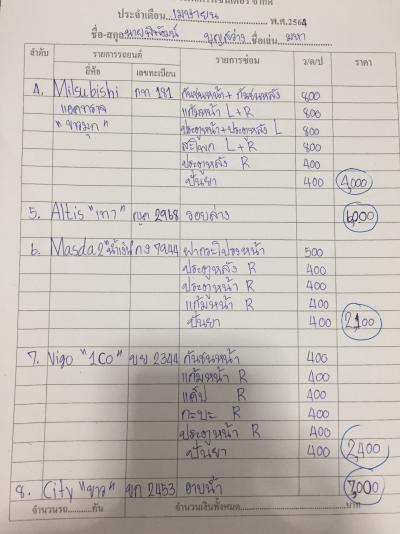 ประจำเดือน เมษายน พ.ศ.2564
ชื่อ-สกุล นายพิพัฒน์ บุญสว่าง ชื่อเล่น มหา
ลำดับ รายการรถยนต์ รายการซ่อม ว/ด/ป ราคา
ยี่ห้อ เลขทะเบียน
4. Milsubishi กท 181 กันชนหน้า + กันชนหลัง 800
แก้มหน้า L+R 800
"ขาวมุก" ประตูหน้า+ประตูหลัง L 800
สะโพก L+R 800
ประตูหลัง R 400
ปั่นยา 400 4,000
5. Altis "เทา" 2968 รอบล่าง 6,000
6. Masda2 "น้ำเงิน" กง 7944 ฝากระโปรงหน้า 500
ประตูหลัง R 400
ประตูหน้า R 400
แก้มหน้า R 400
ปั่นยา 400 2,100
7. Vigo "1C0" บย 2344 กันชนหน้า 400
แก้มหน้า R 400
แค๊ป R 400
กะบะ R 400
ประตูหน้า R 400
ปั่นยา 400 2,400
8. City "ขาว" ขก 2453 อาบน้ำ 7,000
จำนวนรถ..........คัน จำนวนเงินทั้งหมด..........บาท